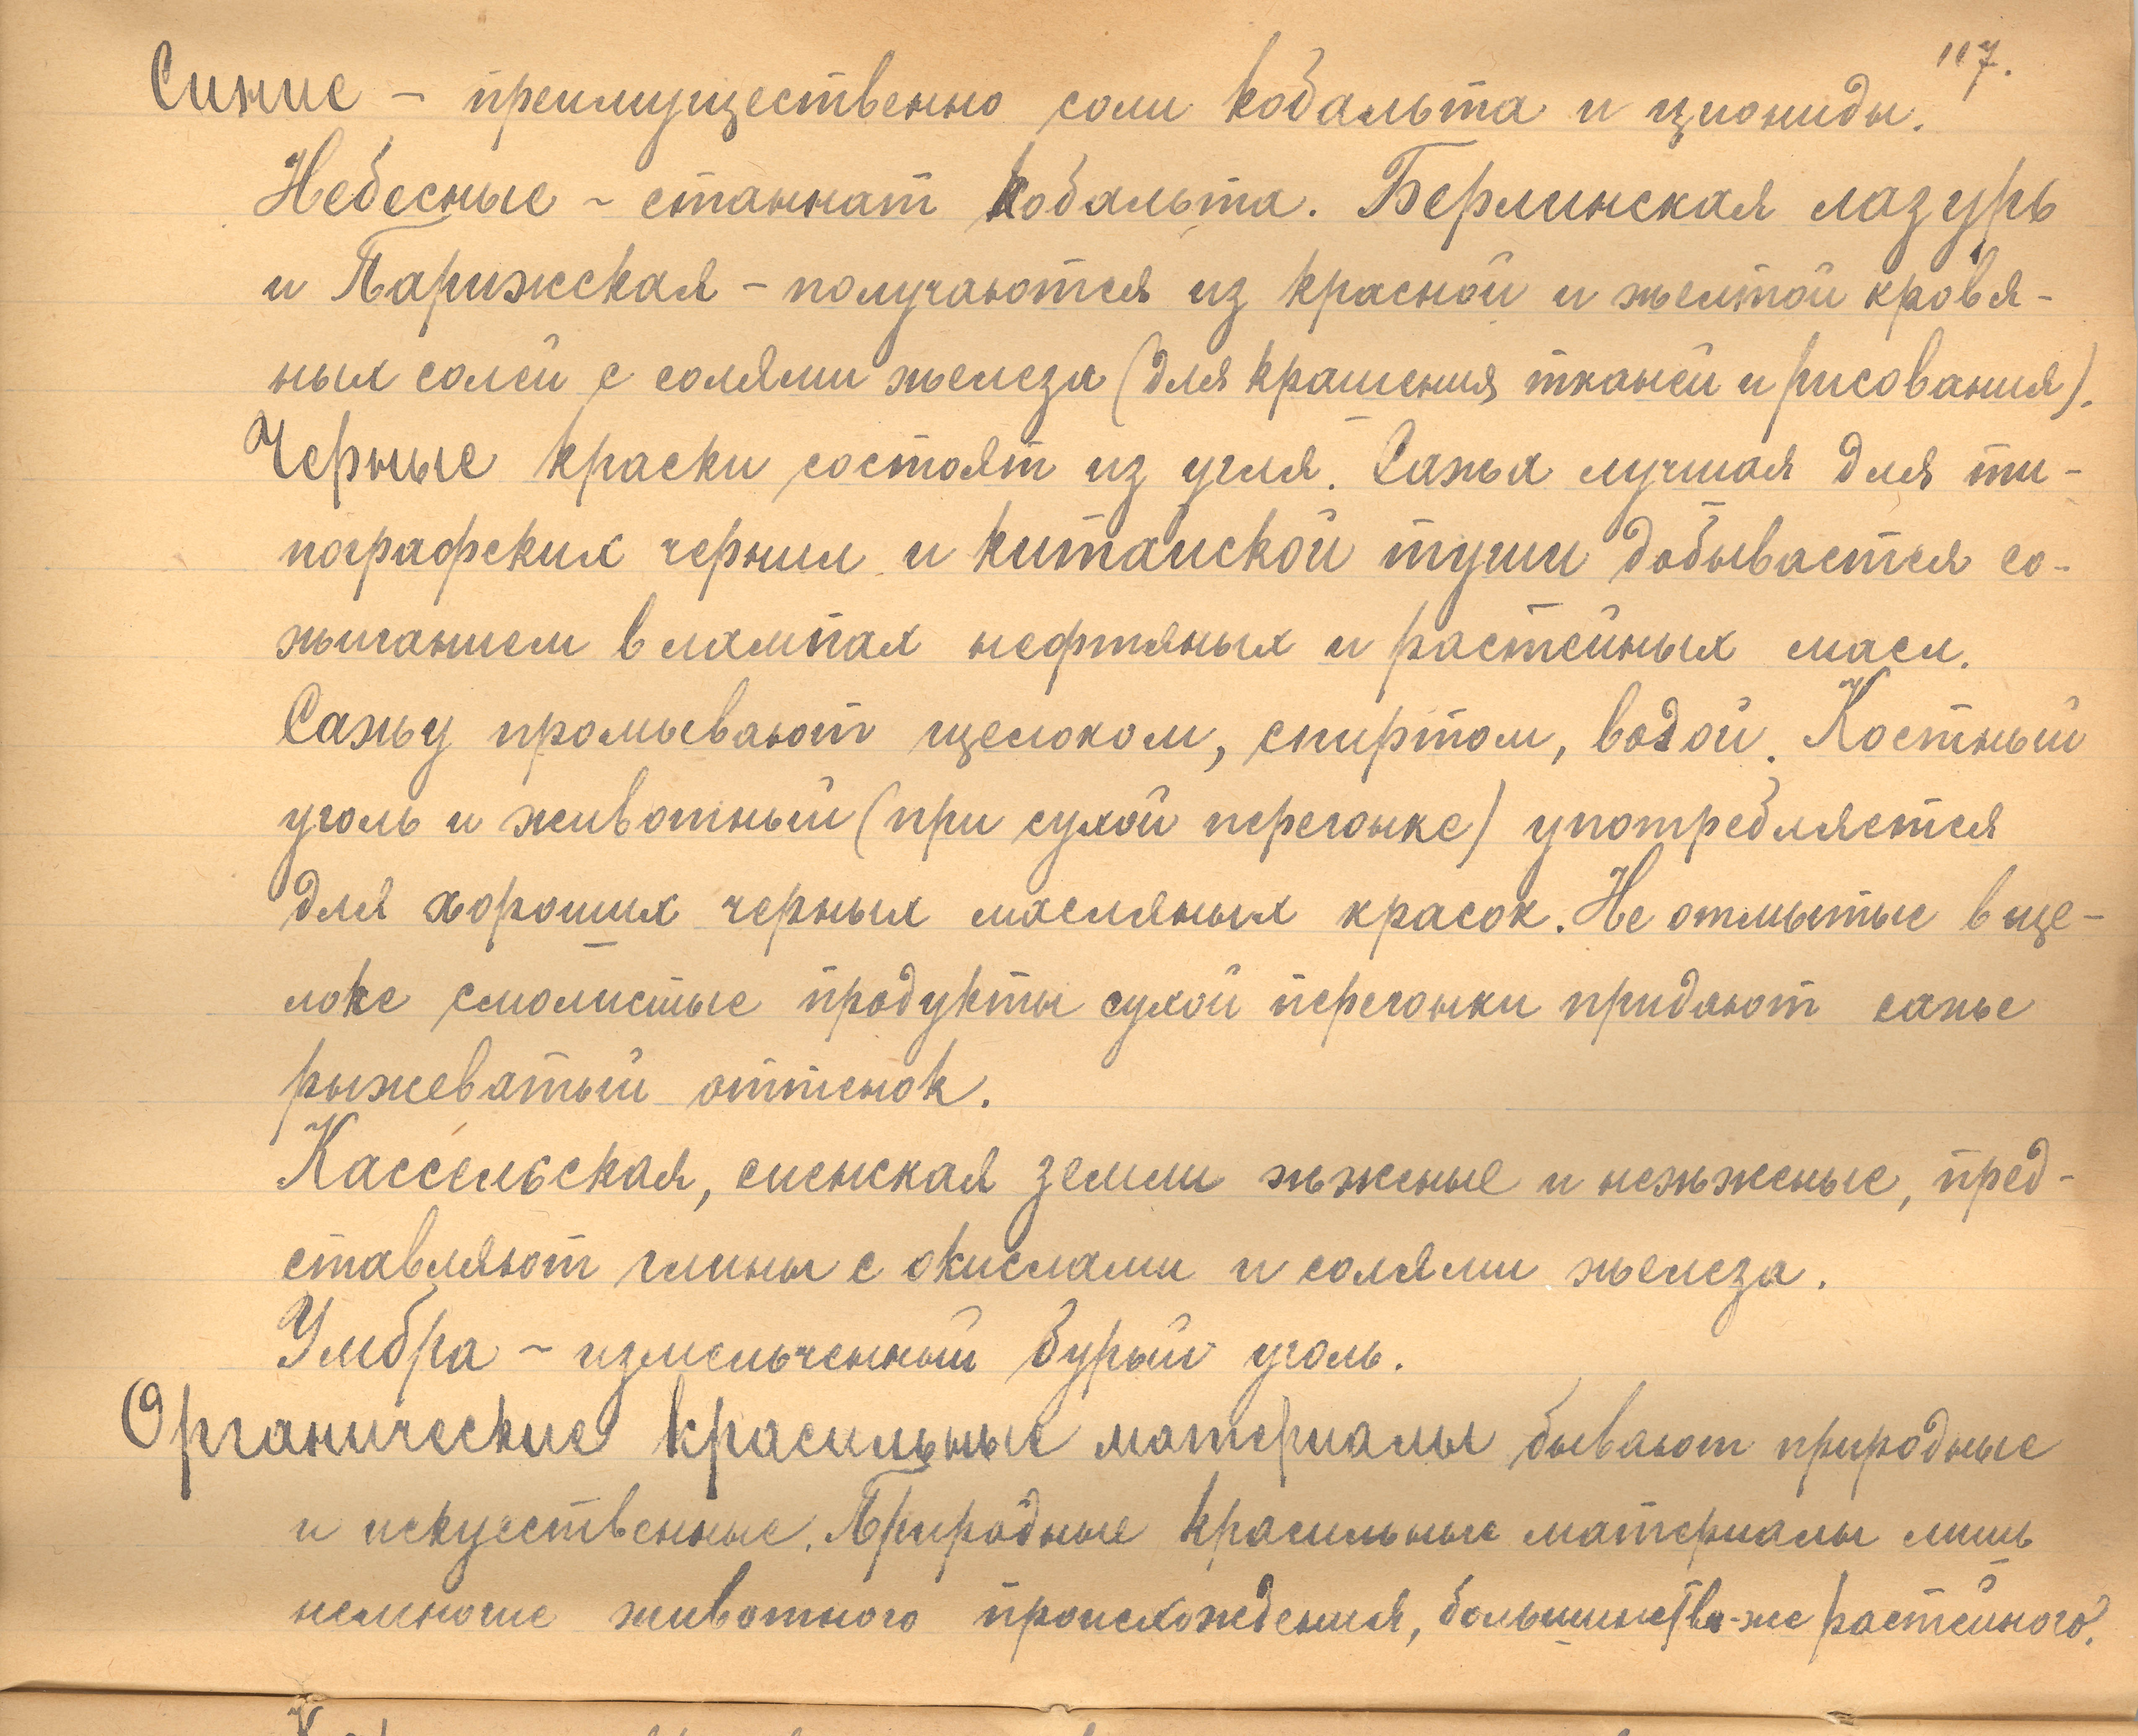 117.
Синие - преимущественно соли кобальта и циониды.
Небесные - станнат кобальта. Берлинская лазурь
и Парижская - получаются из красной и желтой кровя-
ных солей с солями железа (для крашения тканей и рисования).
Черные краски состоят из угля. Сажа лучшая для ти-
пографских чернил и китайской туши добывается со-
жиганием в лампах нефтяных и растейных масл.
Сажу промывают щелоком, спиртом, водой. Костный
уголь и животный (при сухой перегонке) употребляется
для хороших черных масляных красок. Не отмытые в ще-
локе смолистые продукты сухой перегонки придают саже
рыжеватый оттенок.
Кассельская, сиенская земли жженые и нежженые, пред-
ставляют глины с окислами и солями железа.
Умбра - измельченный бурый уголь.
Органические красильные материалы бывают природные
и искуственные. Природные красильные материалы лишь
немногие животного происхождения, большинство-же растейного.